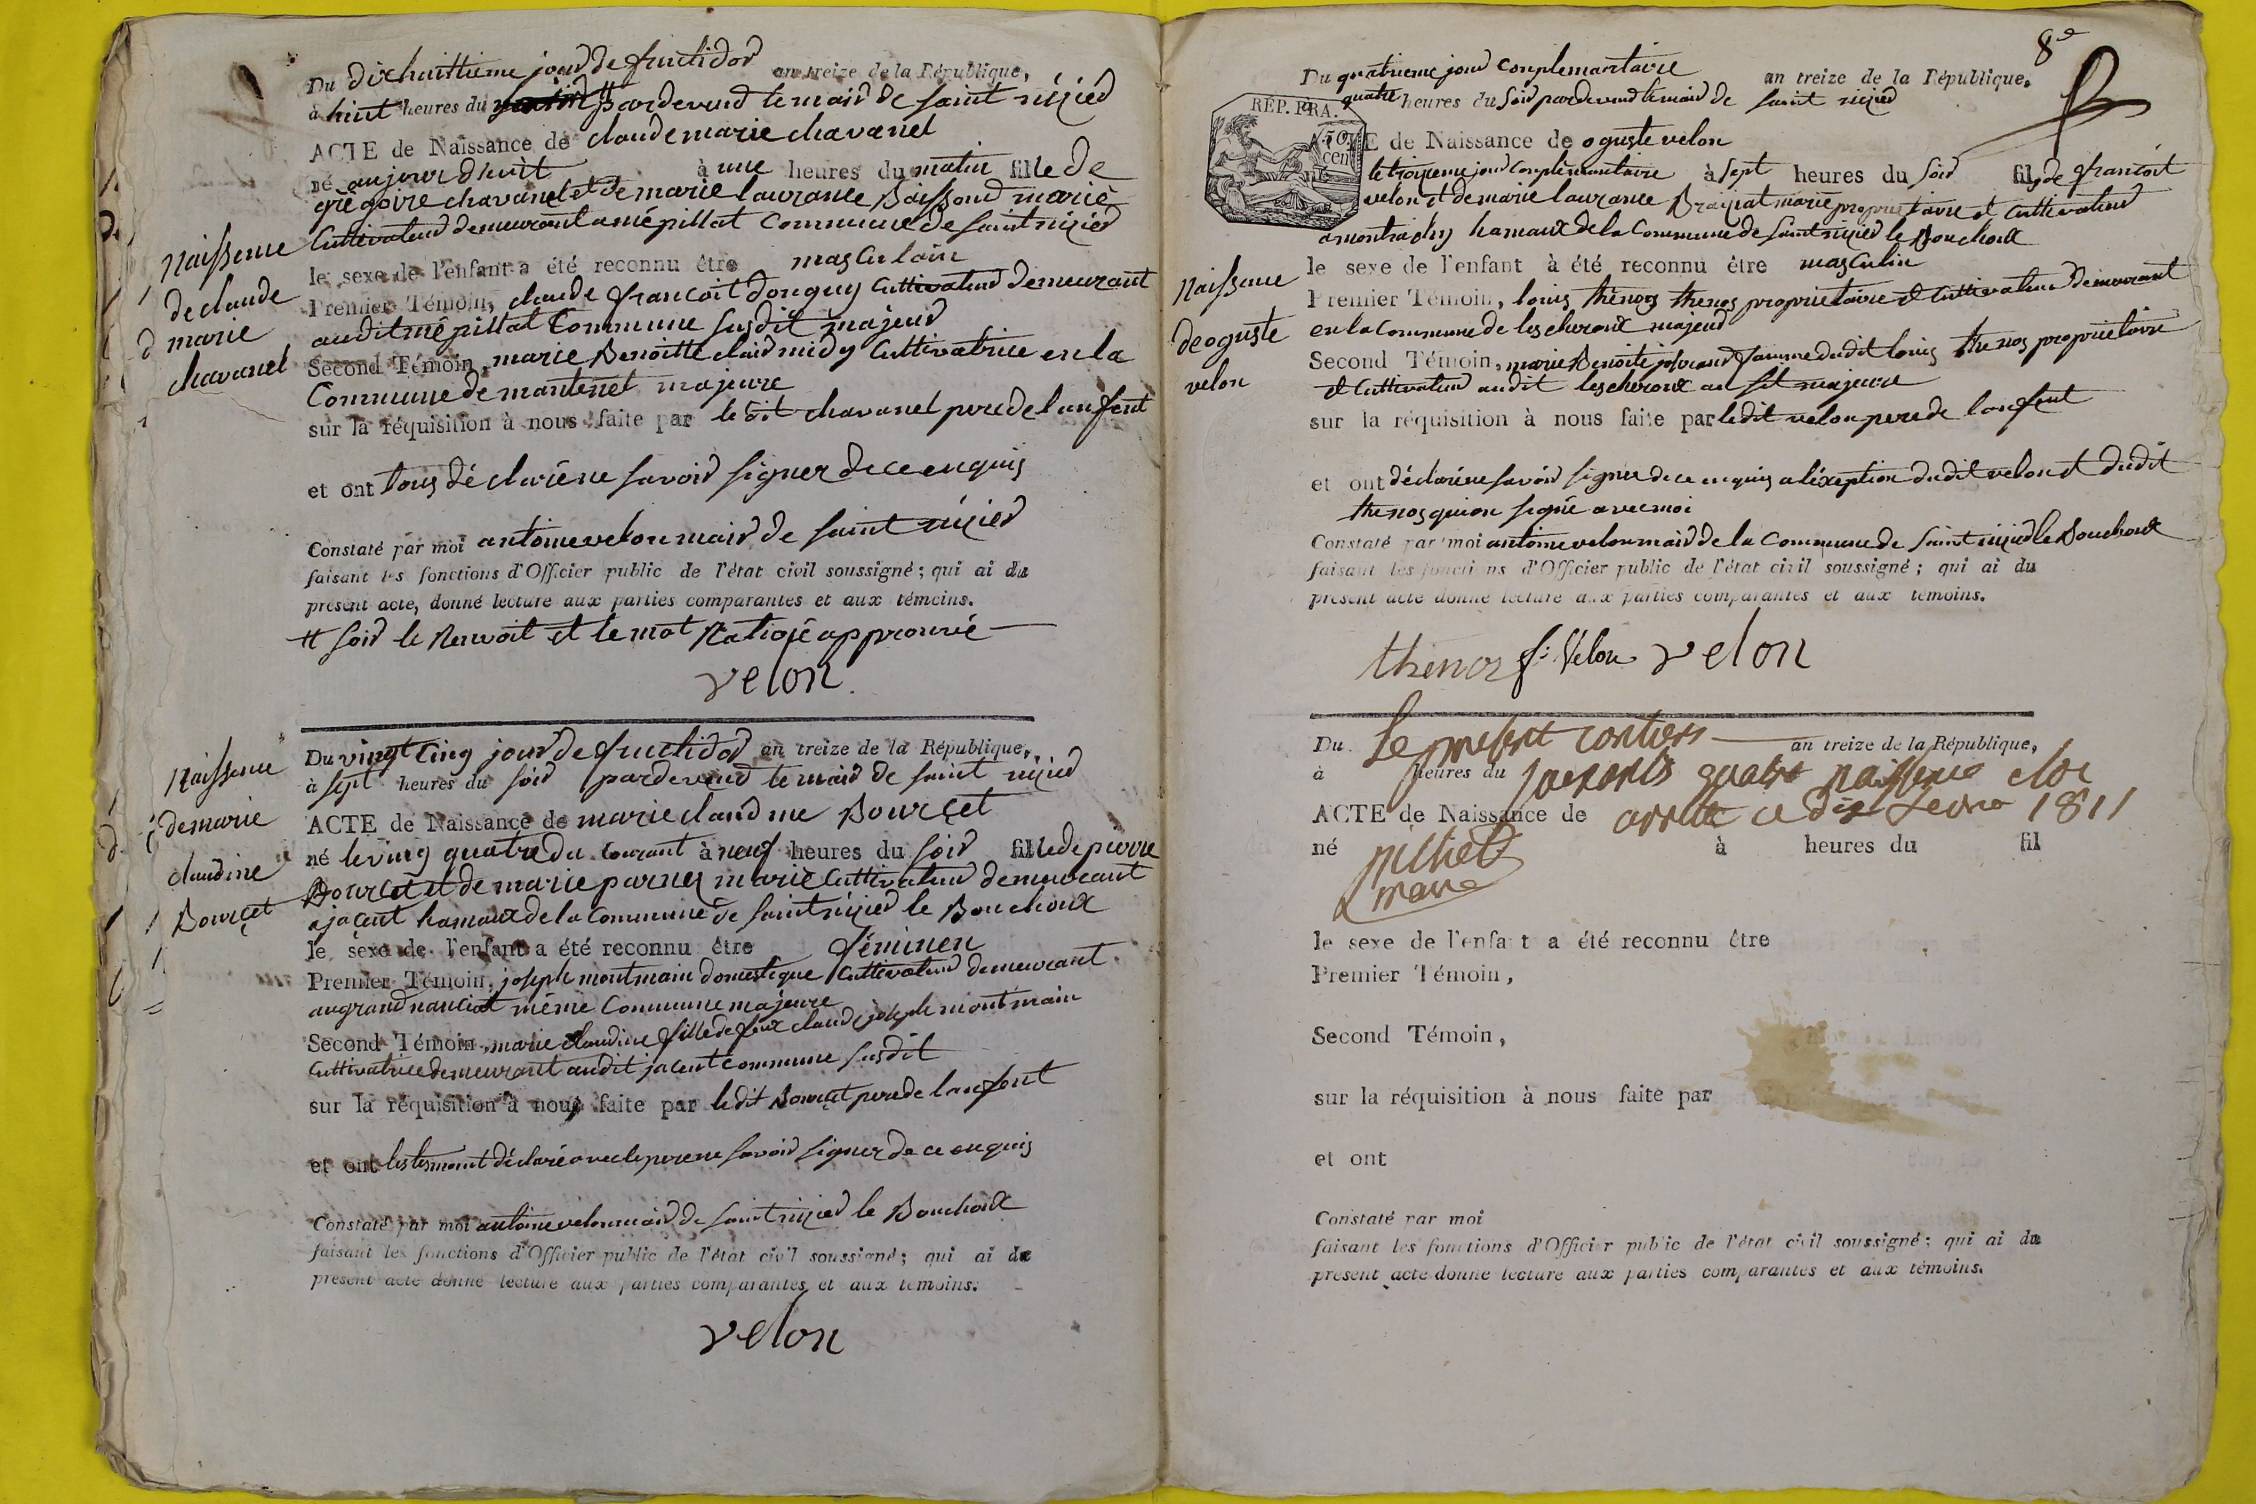 Du dixhuittieme jour de fructidor an treize de la République,
à huit heures du pardevend le maid de saint nizied
ACTE de Naissance de claude marie chavanel
né aujourd'huit à une heures du matin fille de
grégoire chavanel et de marie laurance Boissond marié
Cultivateud demeurant a mépillat Commune de saint nizied
le sexe de l'enfant a été reconnu être masculain
Premier Témoin, claude francoit donguy Cultivateud demeurant
audit mépillat Commune susdit majeurd
Second Témoin, marie Benoitte claid midy Cultivatrice en la
Commune de mantenel majeure
sur la réquisition à nous faite par le dit chavanel pere de lanfent
et ont tous déclaré ne savoid signer de ce enquis
Constaté par moi antoine velon maid de saint nizied
faisant les fonctions d'Officier public de l'état civil soussigné; qui ai du
present acte, donné lecture aux parties comparantes et aux témoins.
# soid le Renvoit et le mot Ratiojé approuvé
velon
Naissence
de claude
marie
chavanel
Du vingt cinq jourd de fructidor an treize de la République,
à sept heures du soid pardevend le maid de saint nizied
ACTE de Naissance de marie claudine Bourcet
né le ving quatre du courant à neuf heures du soid fille de pierre
Bourcet et de marie parnez marié Cultivateud demeurant
a jacent hamaux de la Commune de saint nizied le Bouchoux
le sexe de l'enfant a été reconnu être féminen
Premier Témoin, joseph montmain domestique Cultivateud demeurant
au grand nanciat même Commune majeure
Second Témoin, marie claudine fille de feux claude joseph montmain
Cultivatrice demeurant audit jacent commune susdit
sur la réquisition à nous faite par le dit Bourcet pere de lanfent
et ont les temoint déclaré avec le pere ne savoid signer de ce enquis
Constaté par moi antoine velon maid de saint nizied le Bouchoux
faisant les fonctions d'Officier public de l'état civil soussigné; qui ai du
present acte donné lecture aux parties comparantes et aux temoins.
velon
Naissence
de marie
claudine
Bourcet
8e
Du quatrieme jour complemantaire an treize de la République.
quatre heures du soid pardevend le maid de saint nizied
RÉP. FRA.
50
cen
E de Naissance de oguste velon
le troizieme jour complémantaire à sept heures du soid fils de francoit
velon et de marie laurance marié proprietaire et Cultivateud
a montrachy hamaux de la Commune de saint nizied le Bouchoux
le sexe de l'enfant à été reconnu être masculin
Premier Témoin, louis thenos proprietaire et Cultivateud demeurant
en la Commune de lescheroux majeud
Second Témoin, marie Benoite famme dudit louis thenos proprietaire
et Cultivateud audit lescheroux majeure
sur la réquisition à nous faite par ledit velon pere de lanfent
et ont déclaré ne savoid signer de ce enquis a léxeption dudit velon et dudit
thenos qui on signé avec moi
Constaté par moi antoine velon maid de la Commune de saint nizied le Bouchoux
faisant les foncti ns d'Officier public de l'état civil soussigné; qui ai du
present acte donne lecture aux parties comparantes et aux temoins.
thenos f: Velon velon
Naissence
de oguste
velon
Du Le present contient an treize de la République,
à heures du quatre naissence clos
ACTE de Naissance de arreté ce dix 1811
né à heures du fil
maire
le sexe de l'enfant a été reconnu être
Premier Témoin,
Second Témoin,
sur la réquisition à nous faite par
et ont
Constaté par moi
faisant les fonctions d'Officier public de l'état civil soussigné; qui ai du
present acte donne lecture aux parties comparantes et aux témoins.